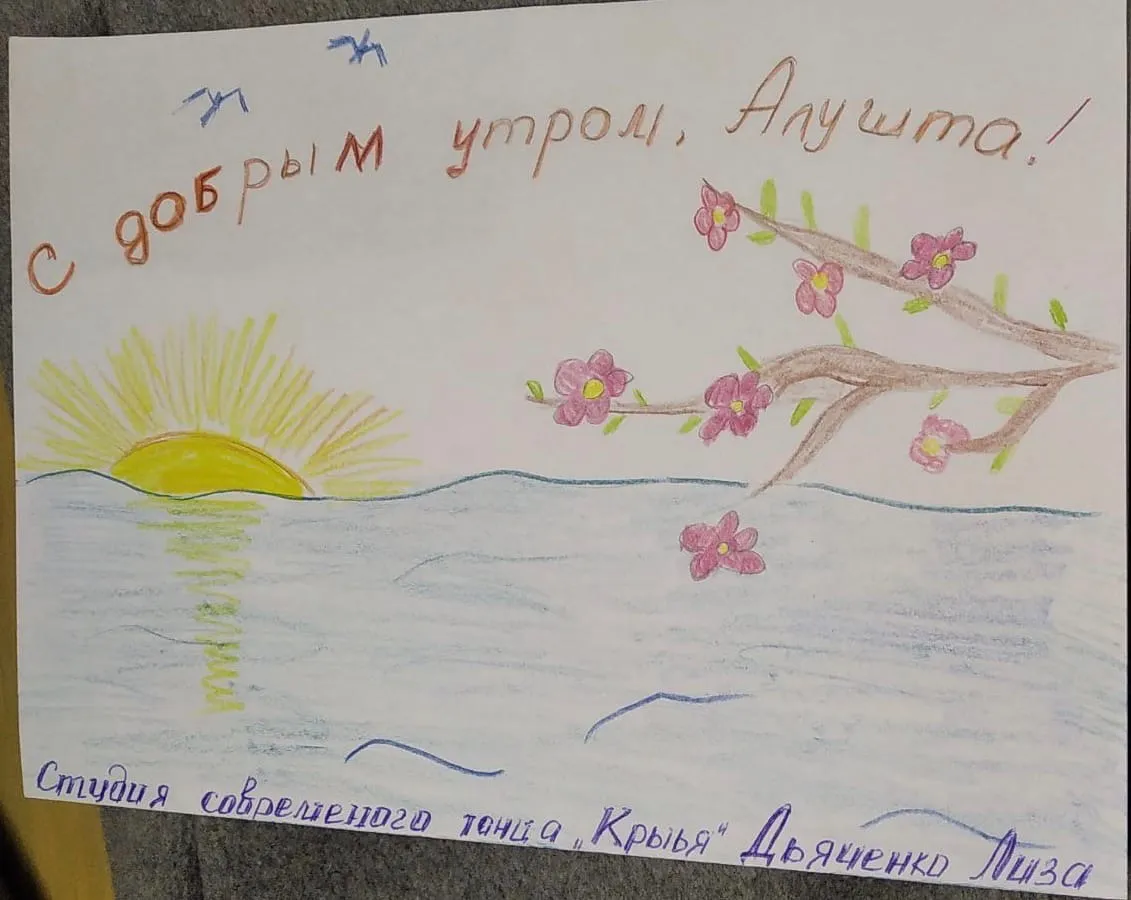 С добрым утром, Алушта!
Студия современого танца „Крыья" Дьяченко Лиза